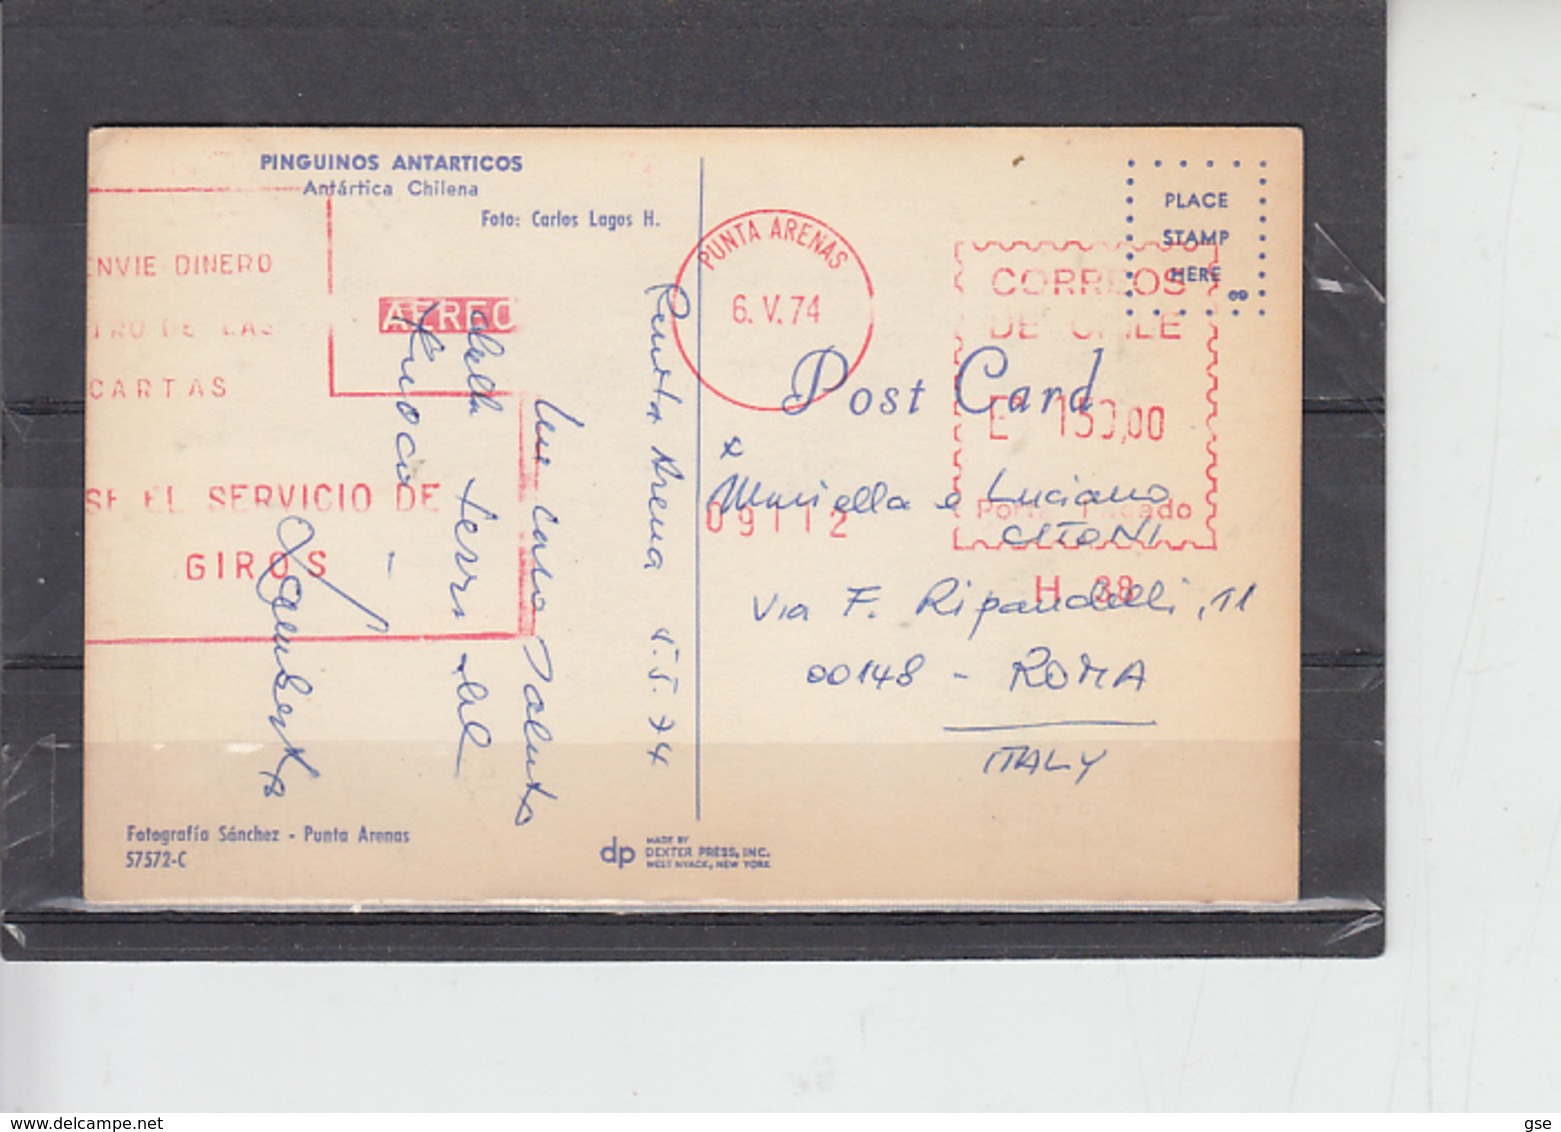 PINGUINOS ANTARTICOS
Antártica Chilena
Foto: Carlos Lagos H.
ENVIE DINERO
TRO DE LAS
CARTAS
SE EL SERVICIO DE
GIROS
AEREO
Punta Arena 5.5.74
Un caro saluto
dalla terra del
fuoco -
PUNTA ARENAS
6. V. 74
09112
CORREOS
DE CHILE
Eº 150,00
Porte Pagado
H 38
PLACE
STAMP
HERE
Post Card
x
Mariella e Luciano
CITONI
Via F. Ripandelli, 11
00148 - ROMA
ITALY
Fotografía Sánchez - Punta Arenas
57572-C
dp
MADE BY
DEXTER PRESS, INC.
WEST NYACK, NEW YORK
gse